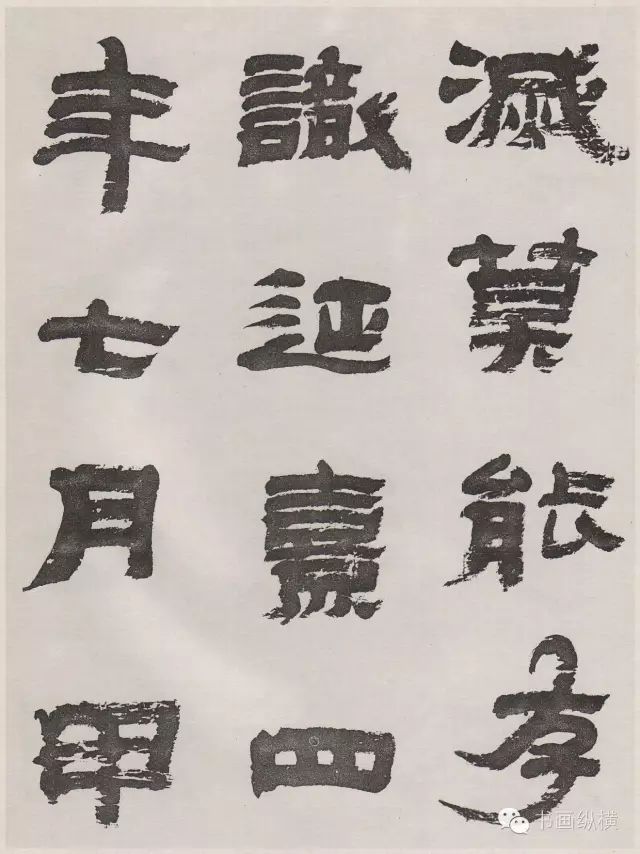 滅莫能存
識延熹四
年七月甲
书画纵横